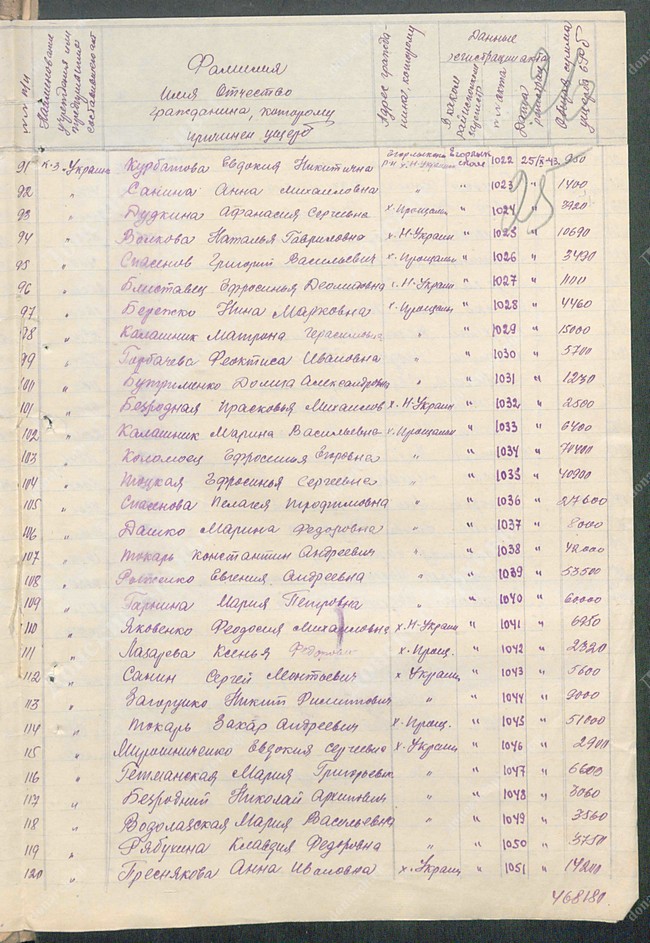 №№ п/п
Наименование учреждения или предприятия составившего акт
Фамилия
Имя Отчество
гражданина, которому
причинен ущерб
Адрес гражданина, которому
Данные
регистрации акта
в каком районе
№ акта
Дата
Общая сумма ущерба в руб
91 к-з Украина Курбатова Евдокия Никитична Егорлыкский р-н х. Н-Украин Егорлык 1022 25/X-43 950
92 " Санина Анна Михайловна " " 1023 " 1400
93 " Дудкина Афанасия Сергеевна х. Прощальн " 1024 " 3920
25
94 " Волкова Наталья Гавриловна х. Н-Украин " 1025 " 10690
95 " Спасенов Григорий Васильевич х. Прощальн " 1026 " 3490
96 " Блистовец Ефросинья Деомидовна х. Н-Украин " 1027 " 1100
97 " Бережко Нина Марковна х. Прощальн " 1028 " 4460
98 " Калашник Матрона Герасимовна " " 1029 " 15000
99 " Горбачева Феоктиса Ивановна " " 1030 " 5700
100 " Бутрименко Александровна " " 1031 " 1230
101 " Безродная Прасковья Михайлов х. Н-Украин " 1032 " 2500
102 " Калашник Марина Васильевна х. Прощальн " 1033 " 6400
103 " Коломоец Ефросинья Егоровна " " 1034 " 70400
104 " Тоцкая Ефросинья Сергеевна " " 1035 " 40900
105 " Спасенова Пелагея Трофимовна " " 1036 " 27600
106 " Дашко Марина Федоровна " " 1037 " 8000
107 " Токарь Константин Андреевич " " 1038 " 42000
108 " Евгения Андреевна " " 1039 " 53500
109 " Гаркина Мария Петровна " " 1040 " 60000
110 " Яковенко Феодосия Михайловна х. Н-Украин " 1041 " 6950
111 " Лазарева Ксенья х. Прощ. " 1042 " 2320
112 " Санин Сергей Леонтьевич х Украин " 1043 " 5600
113 " Загорулко Никит Филиппович " " 1044 " 9000
114 " Токарь Захар Андреевич х. Прощ. " 1045 " 51000
115 " Мирошниченко Евдокия Сергеевна х. Украин " 1046 " 2900
116 " Гетманская Мария Григорьевн " " 1047 " 6600
117 " Безродний Николай Архипович " " 1048 " 3060
118 " Водолазская Мария Васильевна " " 1049 " 3560
119 " Рябухина Клавдия Федоровна " " 1050 " 3750
120 " Преснякова Анна Ивановна х. Украин " 1051 " 14200
468180.